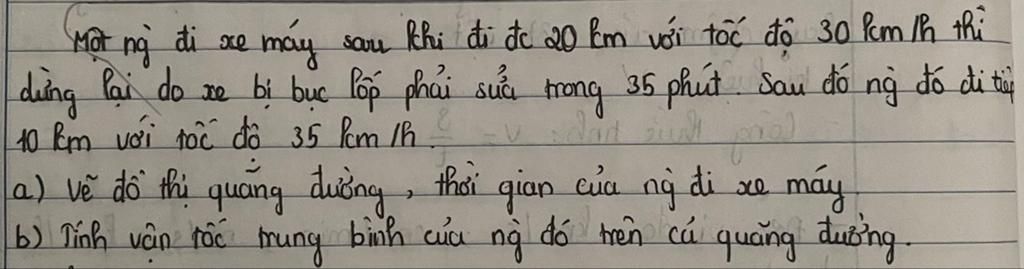 Một ng` đi xe máy sau khi đi đc 20 km với tốc độ 30 km/h thì
dừng lại do xe bị bục lốp phải sửa trong 35 phút. Sau đó ng` đó đi tiếp
10 km với tốc độ 35 km/h.
a) Vẽ đồ thị quãng đường, thời gian của ng` đi xe máy.
b) Tính vận tốc trung bình của ng` đó trên cả quãng đường.